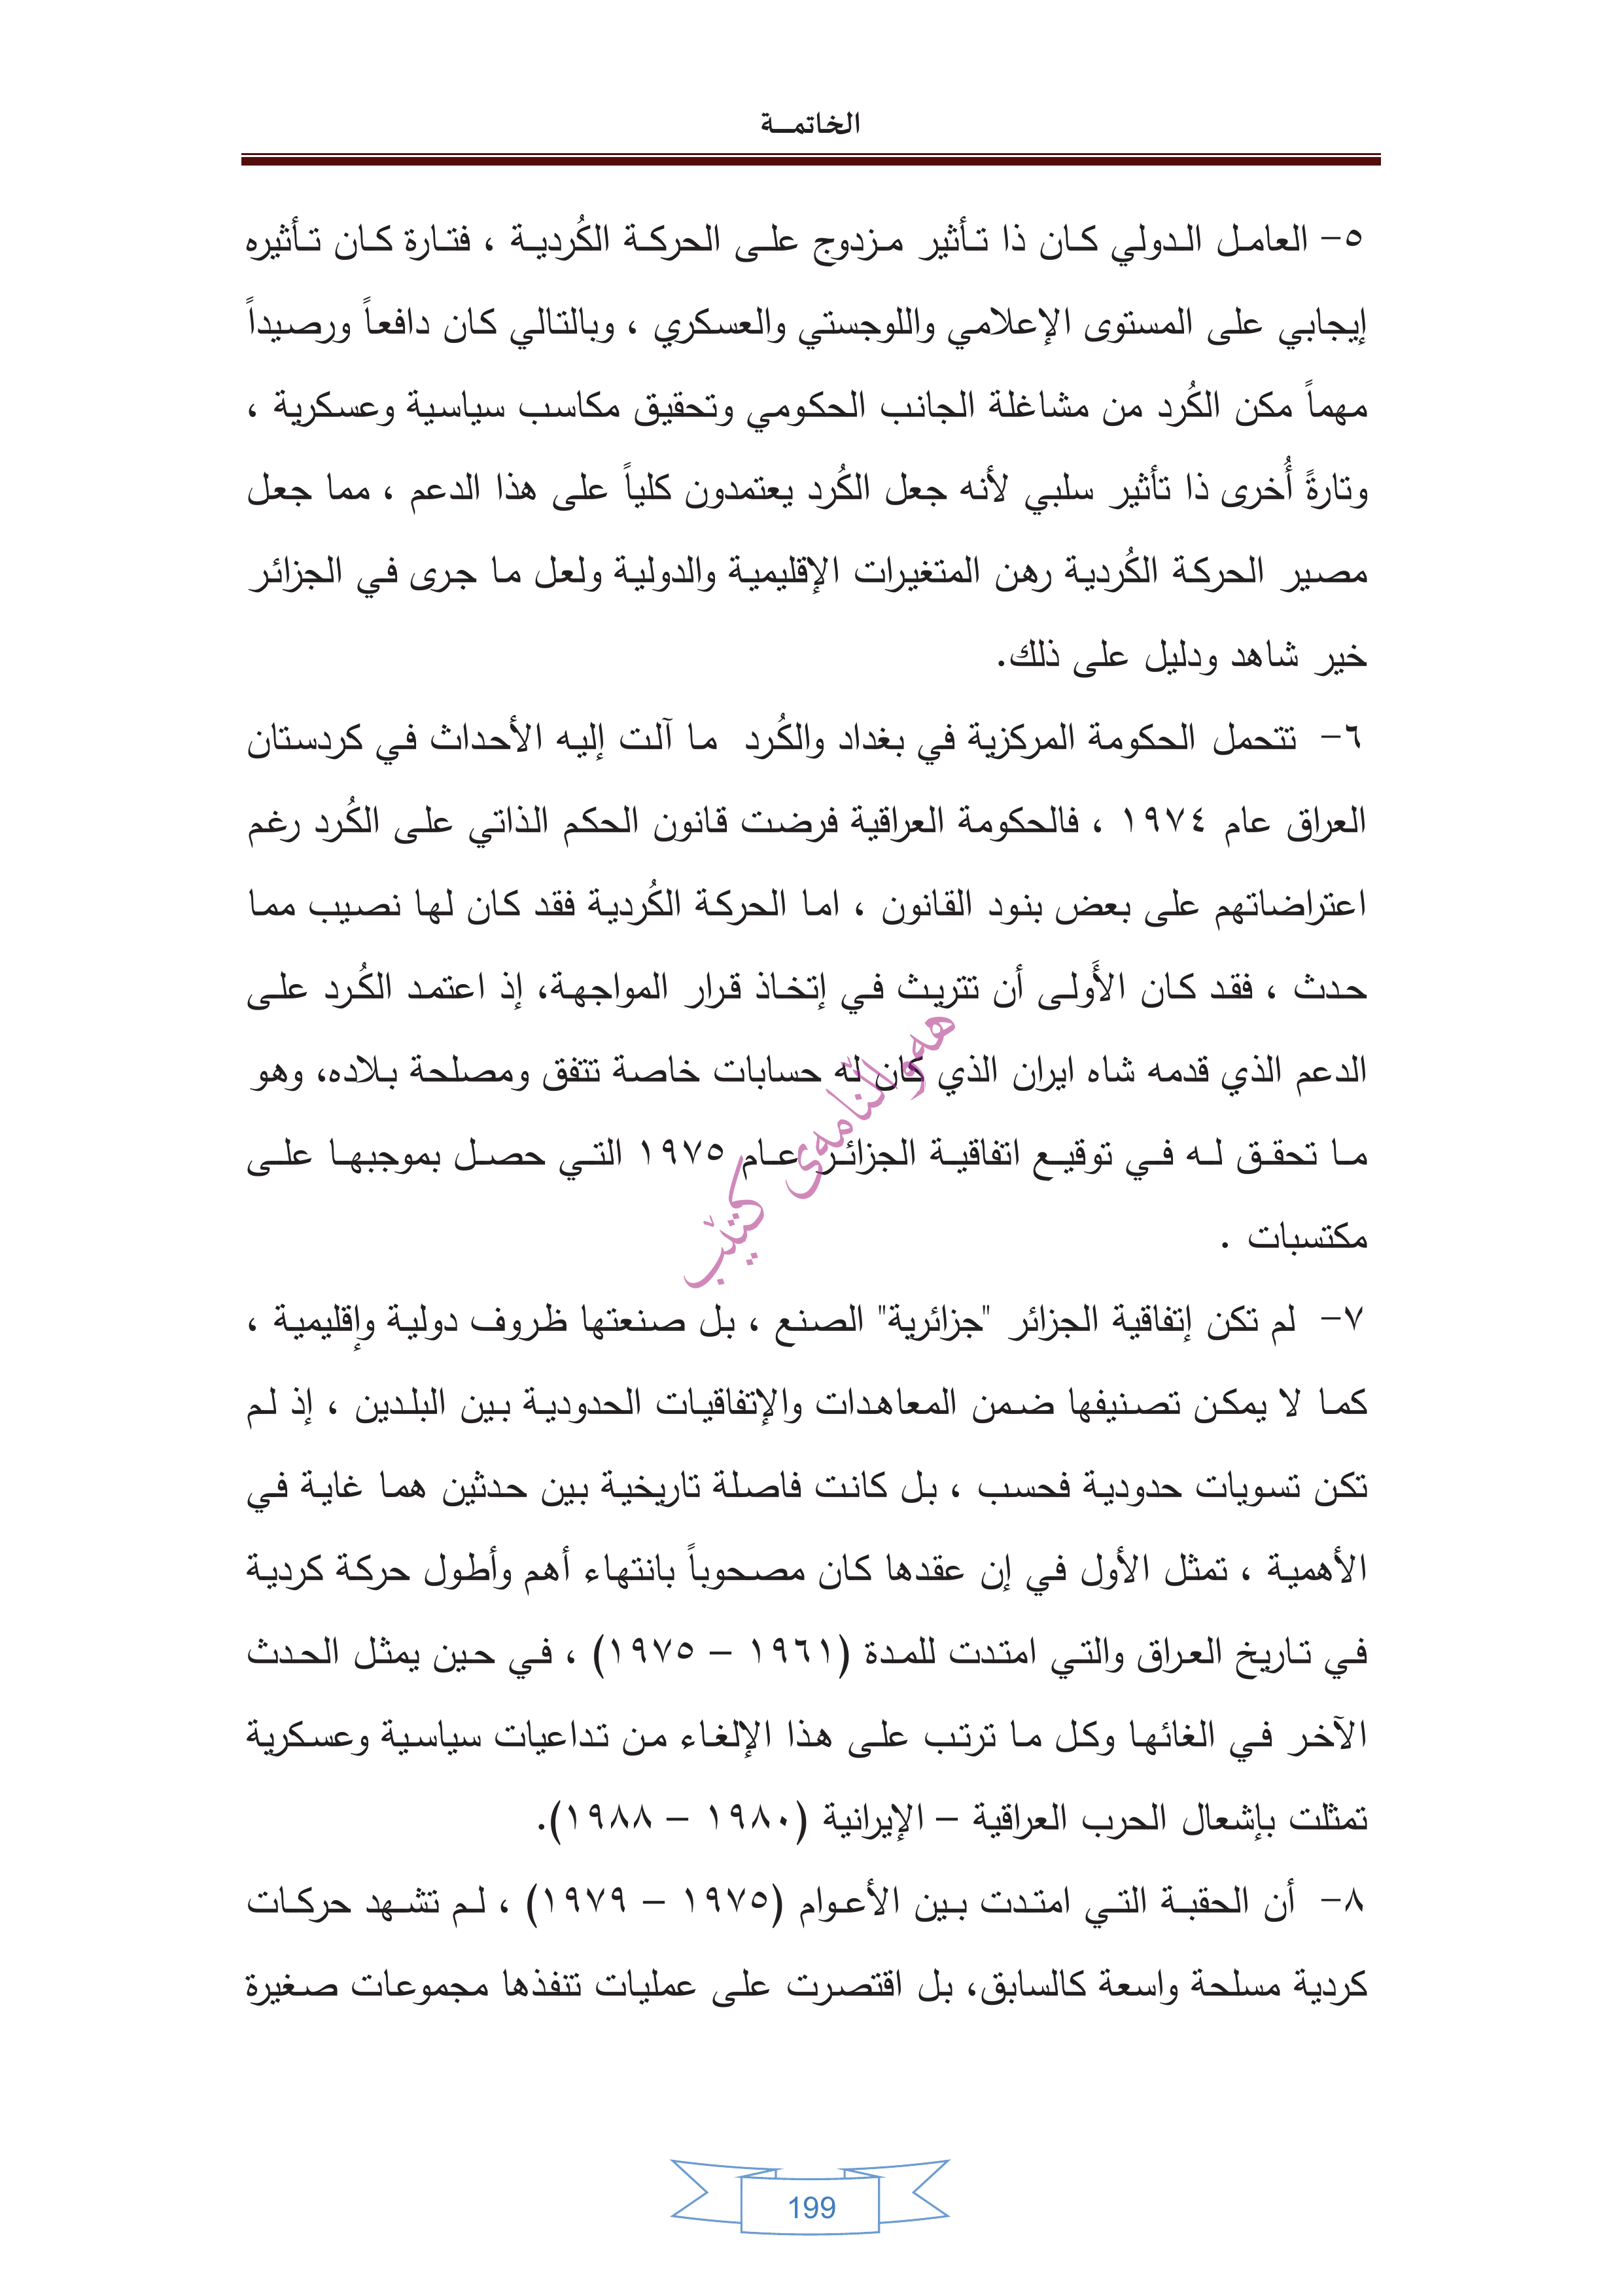 الخاتمـــة
٥- العامل الدولي كان ذا تأثير مزدوج على الحركة الكُردية ، فتارة كان تأثيره
إيجابي على المستوى الإعلامي واللوجستي والعسكري ، وبالتالي كان دافعاً ورصيداً
مهماً مكن الكُرد من مشاغلة الجانب الحكومي وتحقيق مكاسب سياسية وعسكرية ،
وتارةً أُخرى ذا تأثير سلبي لأنه جعل الكُرد يعتمدون كلياً على هذا الدعم ، مما جعل
مصير الحركة الكُردية رهن المتغيرات الإقليمية والدولية ولعل ما جرى في الجزائر
خير شاهد ودليل على ذلك.
٦- تتحمل الحكومة المركزية في بغداد والكُرد ما آلت إليه الأحداث في كردستان
العراق عام ١٩٧٤ ، فالحكومة العراقية فرضت قانون الحكم الذاتي على الكُرد رغم
اعتراضاتهم على بعض بنود القانون ، اما الحركة الكُردية فقد كان لها نصيب مما
حدث ، فقد كان الأَولى أن تتريث في إتخاذ قرار المواجهة، إذ اعتمد الكُرد على
الدعم الذي قدمه شاه ايران الذي كان له حسابات خاصة تتفق ومصلحة بلاده، وهو
ما تحقق له في توقيع اتفاقية الجزائر عام ١٩٧٥ التي حصل بموجبها على
مكتسبات .
هەواڵنامەی کتێب
٧- لم تكن إتفاقية الجزائر "جزائرية" الصنع ، بل صنعتها ظروف دولية وإقليمية ،
كما لا يمكن تصنيفها ضمن المعاهدات والإتفاقيات الحدودية بين البلدين ، إذ لم
تكن تسويات حدودية فحسب ، بل كانت فاصلة تاريخية بين حدثين هما غاية في
الأهمية ، تمثل الأول في إن عقدها كان مصحوباً بانتهاء أهم وأطول حركة كردية
في تاريخ العراق والتي امتدت للمدة (١٩٦١ – ١٩٧٥) ، في حين يمثل الحدث
الآخر في الغائها وكل ما ترتب على هذا الإلغاء من تداعيات سياسية وعسكرية
تمثلت بإشعال الحرب العراقية – الإيرانية (١٩٨٠ – ١٩٨٨).
٨- أن الحقبة التي امتدت بين الأعوام (١٩٧٥ – ١٩٧٩) ، لم تشهد حركات
كردية مسلحة واسعة كالسابق، بل اقتصرت على عمليات تنفذها مجموعات صغيرة
199